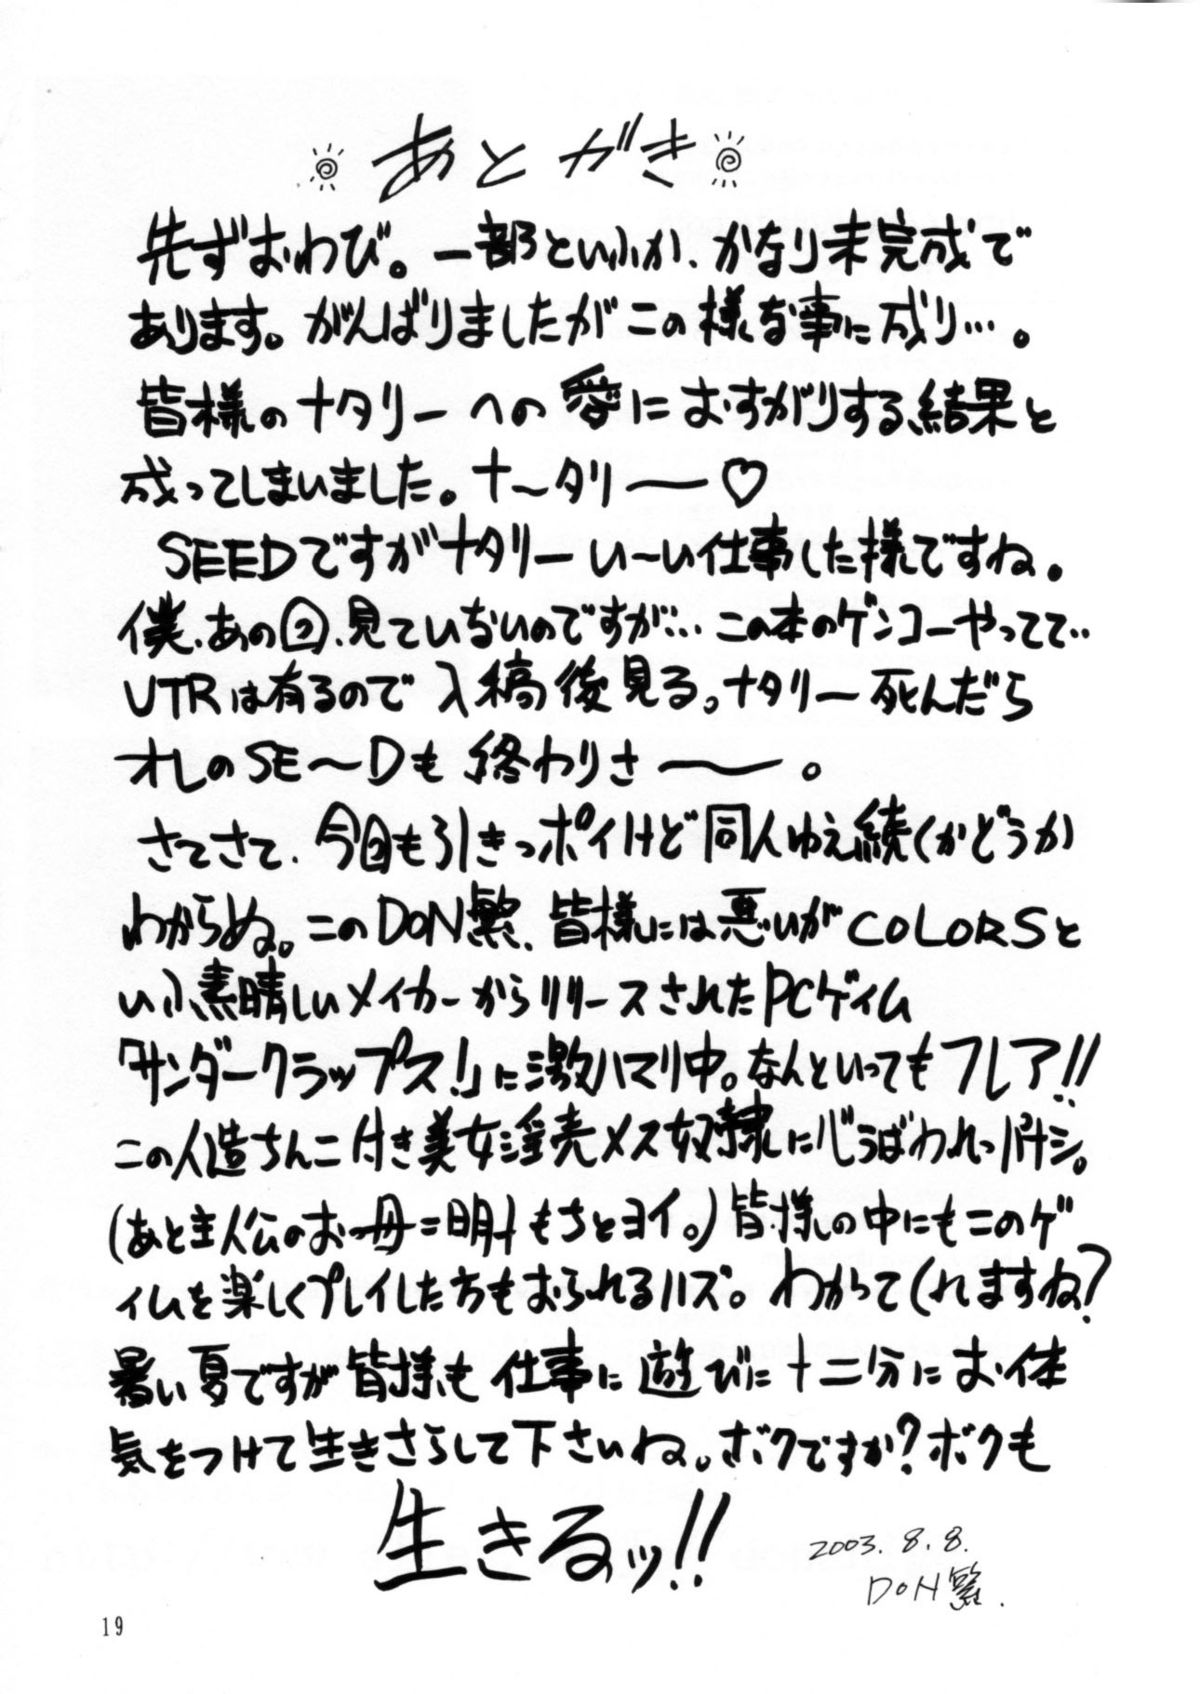 あとがき
先ずおわび。一部といふか、かなり未完成で
あります。がんばりましたがこの様な事に成り…。
皆様のナタリーへの愛におすがりする結果と
成ってしまいました。ナ〜タリー――♡
SEEDですがナタリーい〜い仕事した様ですね。
僕、あの回、見ていないのですが… この本のゲンコーやってて‥
VTRは有るので入稿後見る。ナタリー死んだら
オレのSE〜Dも終わりさ――。
さてさて、今回も引きっポイけど同人ゆえ続くかどうか
わからぬ。このDON繁、皆様には悪いがCOLORSと
いふ素晴しいメイカーからリリースされたPCゲイム
「サンダークラップス!」に激ハマリ中。なんといってもフレア!!
この人造ちんこ付き美女淫売メス奴隷に心うばわれっパナシ。
(あと主人公のお母=明 もちとヨイ。)皆様の中にもこのゲ
イムを楽しくプレイした方もおられるハズ。わかってくれますね?
暑い夏ですが皆様も仕事に遊びに十二分にお体
気をつけて生きさらして下さいね。ボクですか?ボクも
生きるッ!!
2003.8.8.
DON繁.
19